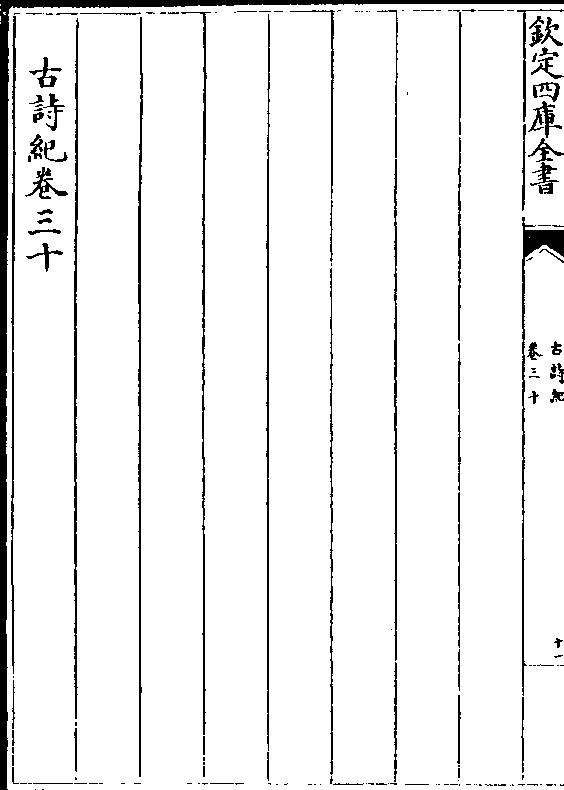 欽定四庫全書
古詩紀
卷三十
十一
古詩紀卷三十